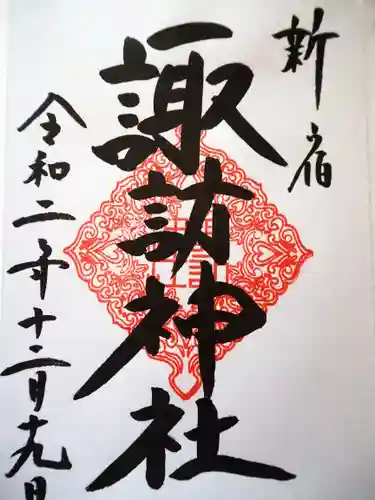 新宿
諏訪神社
令和二年十二月十九日